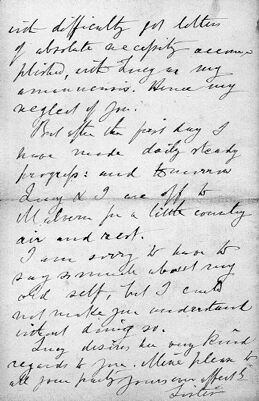 with difficulty got letters
of absolute necessity accom-
plished, with Lucy as my
amanuensis. Hence my
neglect of you.
But after the first day I
have made daily steady
progress: and tomorrow
Lucy & I are off to
Malvern for a little country
air and rest.
I am sorry to have to
say so much about my
old self, but I could
not make you understand
without doing so.
Lucy desires her very kind
regards to you. Mine please to
all your party Yours ever affect
Sister